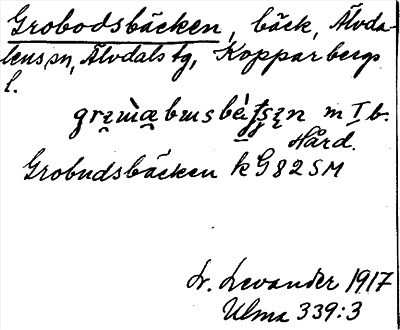 Grobodsbäcken, bäck, Älvda-
lens sn, Älvdals tg, Kopparbergs
l.
m I b.
Hård.
Grobudsbäcken k G 82 SM
L. Levander 1917
Ulma 339:3